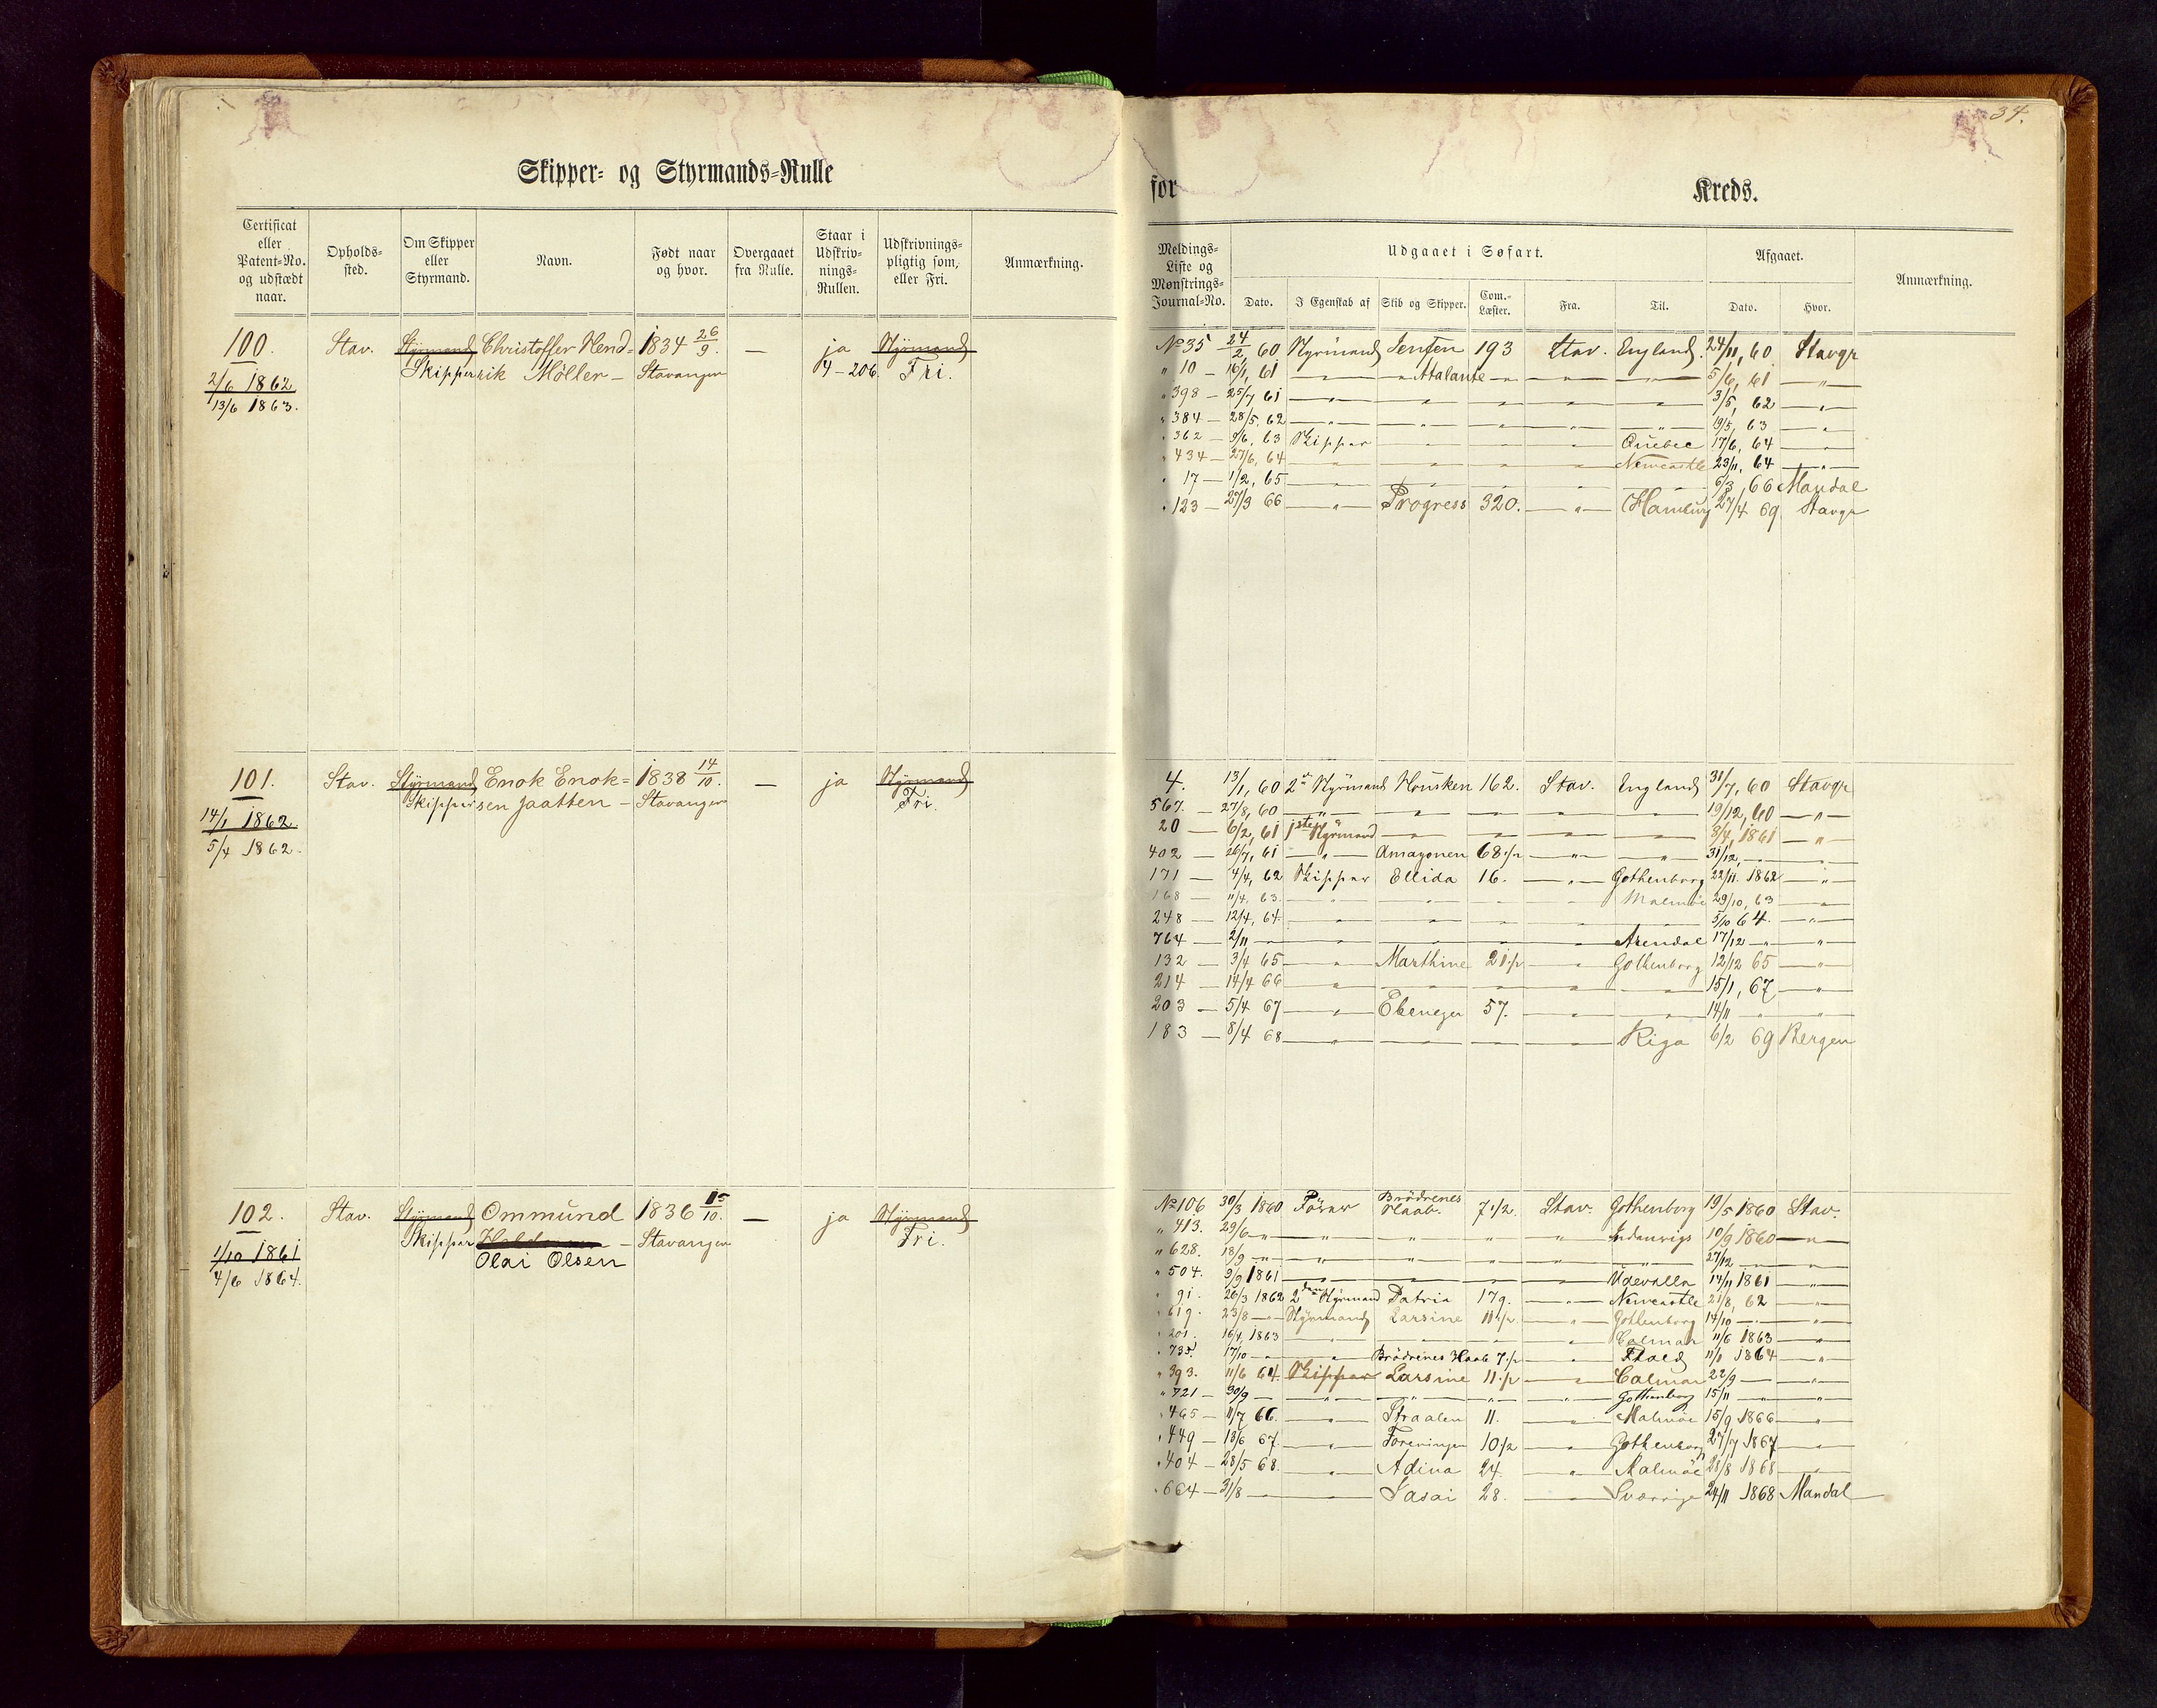 34.
Skipper- og Styrmands-Rulle
for Kreds.
Certificat eller Patent-No. og udstædt naar.
Opholds-sted.
Om Skipper eller Styrmand.
Navn.
Født naar og hvor.
Overgaaet fra Rulle.
Staar i Udskriv-nings-Rullen.
Udskrivnings-pligtig som, eller Fri.
Anmærkning.
Meldings-Liste og Mønstrings-Journal-No.
Udgaaet i Søfart.
Dato. I Egenskab af Skib og Skipper. Com.-Læster. Fra. Til.
Afgaaet.
Dato. Hvor.
Anmærkning.
100. Stav. Styrmand Christoffer Hend= 1834 26/9. — ja Styrmand
Skipper rik Möller — Stavanger 4-206. Fri.
2/6 1862
13/6 1863.
No 35 24/2, 60 Styrmand Jensen 193 Stav. England 24/11, 60 Stavgr
" 10 — 16/1, 61 — " Atalante — " — 5/6, 61 — " —
" 398 — 25/7 61 — " — 3/5, 62 — " —
" 384 — 28/5. 62 — " — 19/5, 63 — " —
" 362 — 9/6. 63 Skipper — " — Quebec 17/6, 64 — " —
" 434 — 27/6, 64 — " — Newcastle 23/11, 64 — " —
" 17 — 1/2, 65 — " — 6/3, 66 Mandal
" 123 — 27/3 66 — " — Progress 320. — " — Hamburg 27/4 69 Stavgr
101. Stav. Styrmand Enok Enok= 1838 14/10. — ja Styrmand
Skipper sen Jaatten — Stavanger Fri.
14/1 1862.
5/4 1862.
4. 13/1, 60 2den Styrmand Housken 162. Stav. England 31/7, 60 Stavgr
567. — 27/8, 60 — " — 19/12, 60 — " —
20 — 6/2, 61 1ste Styrmand — " — 8/4, 1861 — " —
402 — 26/7, 61 — " — Amazonen 68 1/2 — " — 31/12, — " —
171 — 4/4, 62 Skipper Ellida 16. — " — Gothenborg 22/11. 1862 — " —
168 — 11/4, 63. — " — Malmöe 29/10, 63 — " —
248 — 12/4, 64. — " — 5/10, 64. — " —
764 — 2/11 — " — Arendal 17/12 — " —
132 — 3/4 65 — " — Marthine 21 1/2 — " — Gothenborg 12/12 65 — " —
214 — 14/4 66 — " — 15/1, 67 — " —
203 — 5/4 67 — " — Ebenezer 57. — " — 14/11 — " —
183 — 8/4 68 — " — Riga 6/2 69 Bergen
102. Stav. Styrmand Ommund 1836 15/10. — ja Styrmand
Skipper — Stavanger Fri.
Olai Olsen
1/10 1861
4/6 1864.
No 106 30/3 1860 Brödrenes Haab. 7 1/2. Stav. Gothenborg 19/5 1860 Stav.
" 413. 29/6 — " — 10/9 1860 — " —
" 628. 18/9 — " — 27/12 — " —
" 504. 9/9 1861 — " — Udevalla 14/11 1861 — " —
" 91. 26/3 1862 2den Styrmand Patria 179. — " — Newcastle 21/8, 62 — " —
" 619. 23/8 — " — Styrmand Larsine 11 1/2. — " — Gothenborg 14/10 — " —
" 201. 16/4, 1863 — " — Calmar 11/6 1863 — " —
" 735. 17/10 — " — Brödrenes Haab 7 1/2 — " — 11/1 1864 — " —
" 393. 11/6 64. Skipper Larsine 11 1/2 — " — Calmar 22/9 — " —
" 721 — 30/9 — " — Gothenborg 15/11 — " —
" 465 — 11/7 66. — " — Straalen 11. — " — Malmöe 15/9 1866 — " —
" 449 — 13/6 67. — " — Foreningen 10 1/2 — " — Gothenborg 27/7 1867 — " —
" 404 — 28/5 68. — " — Adina 24. — " — Malmöe 21/8 1868 — " —
" 664 — 31/8 — " — 28. — " — Sverrige 24/11 1868 Mandal